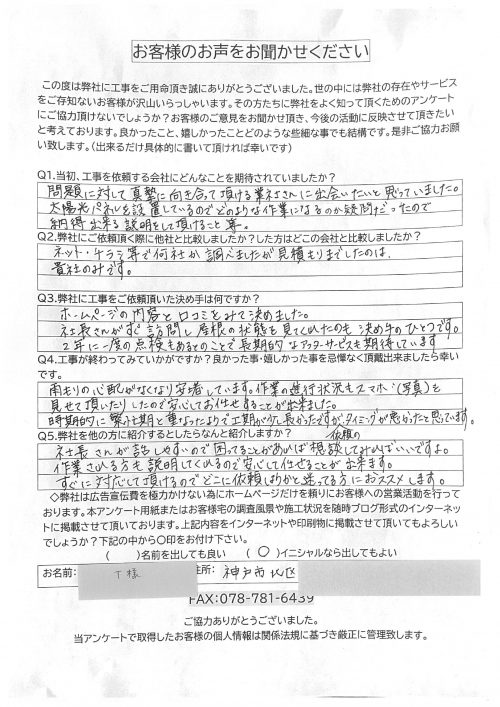 お客様のお声をお聞かせください
この度は弊社に工事をご用命頂き誠にありがとうございました。世の中には弊社の存在やサービス
をご存知ないお客様が沢山いらっしゃいます。その方たちに弊社をよく知って頂くためのアンケート
にご協力頂けないでしょうか？お客様のご意見をお聞かせ頂き、今後の活動に反映させて頂きたい
と考えております。良かったこと、嬉しかったことどのような些細な事でも結構です。是非ご協力お願
い致します。（出来るだけ具体的に書いて頂ければ幸いです）
Q1.当初、工事を依頼する会社にどんなことを期待されていましたか？
問題に対して真摯に向き合って頂ける業者さんに出会いたいと思っていました。
太陽光パネルを設置しているのでどのような作業になるのか疑問だったので
納得出来る説明をして頂けること等。
Q2.弊社にご依頼頂く際に他社と比較しましたか？した方はどこの会社と比較しましたか？
ネット・チラシ等で何社か調べましたが見積もりまでしたのは、
貴社のみです。
Q3.弊社に工事をご依頼頂いた決め手は何ですか？
ホームページの内容と口コミをみて決めました。
社長さんがすぐ訪問し屋根の状態を見てくれたのも決め手のひとつです。
2年に一度の点検もあるとのことで長期的なアフターサービスも期待しています
Q4.工事が終わってみていかがですか？良かった事・嬉しかった事を忌憚なく頂戴出来ましたら幸い
です。
雨もりの心配がなくなり安堵しています。作業の進行状況もスマホ（写真）を
見せて頂いたりしたので安心してお任せすることが出来ました。
時期的に繁忙期と重なったようで工期が少し長かったですがタイミングが悪かったと思っています。
Q5.弊社を他の方に紹介するとしたらなんと紹介しますか？
社長さんが話しやすいので困ってることがあれば相談してみればいいですよ。
作業される方も説明してくれるので安心して任せることが出来ます。
すぐに対応して頂けるのでどこに依頼しようかと迷ってる方におススメします。
◇弊社は広告宣伝費を極力かけない為にホームページだけを頼りにお客様への営業活動を行って
おります。本アンケート用紙またはお客様宅の調査風景や施工状況を随時ブログ形式のインターネッ
トに掲載させて頂いております。上記内容をインターネットや印刷物に掲載させて頂いてもよろしい
でしょうか？下記の中から〇印をお付け下さい。
（　　）名前を出しても良い　（ ○ ）イニシャルなら出してもよい
お名前： T様 住所： 神戸市北区
FAX:078-781-6439
ご協力ありがとうございました。
当アンケートで取得したお客様の個人情報は関係法規に基づき厳正に管理致します。